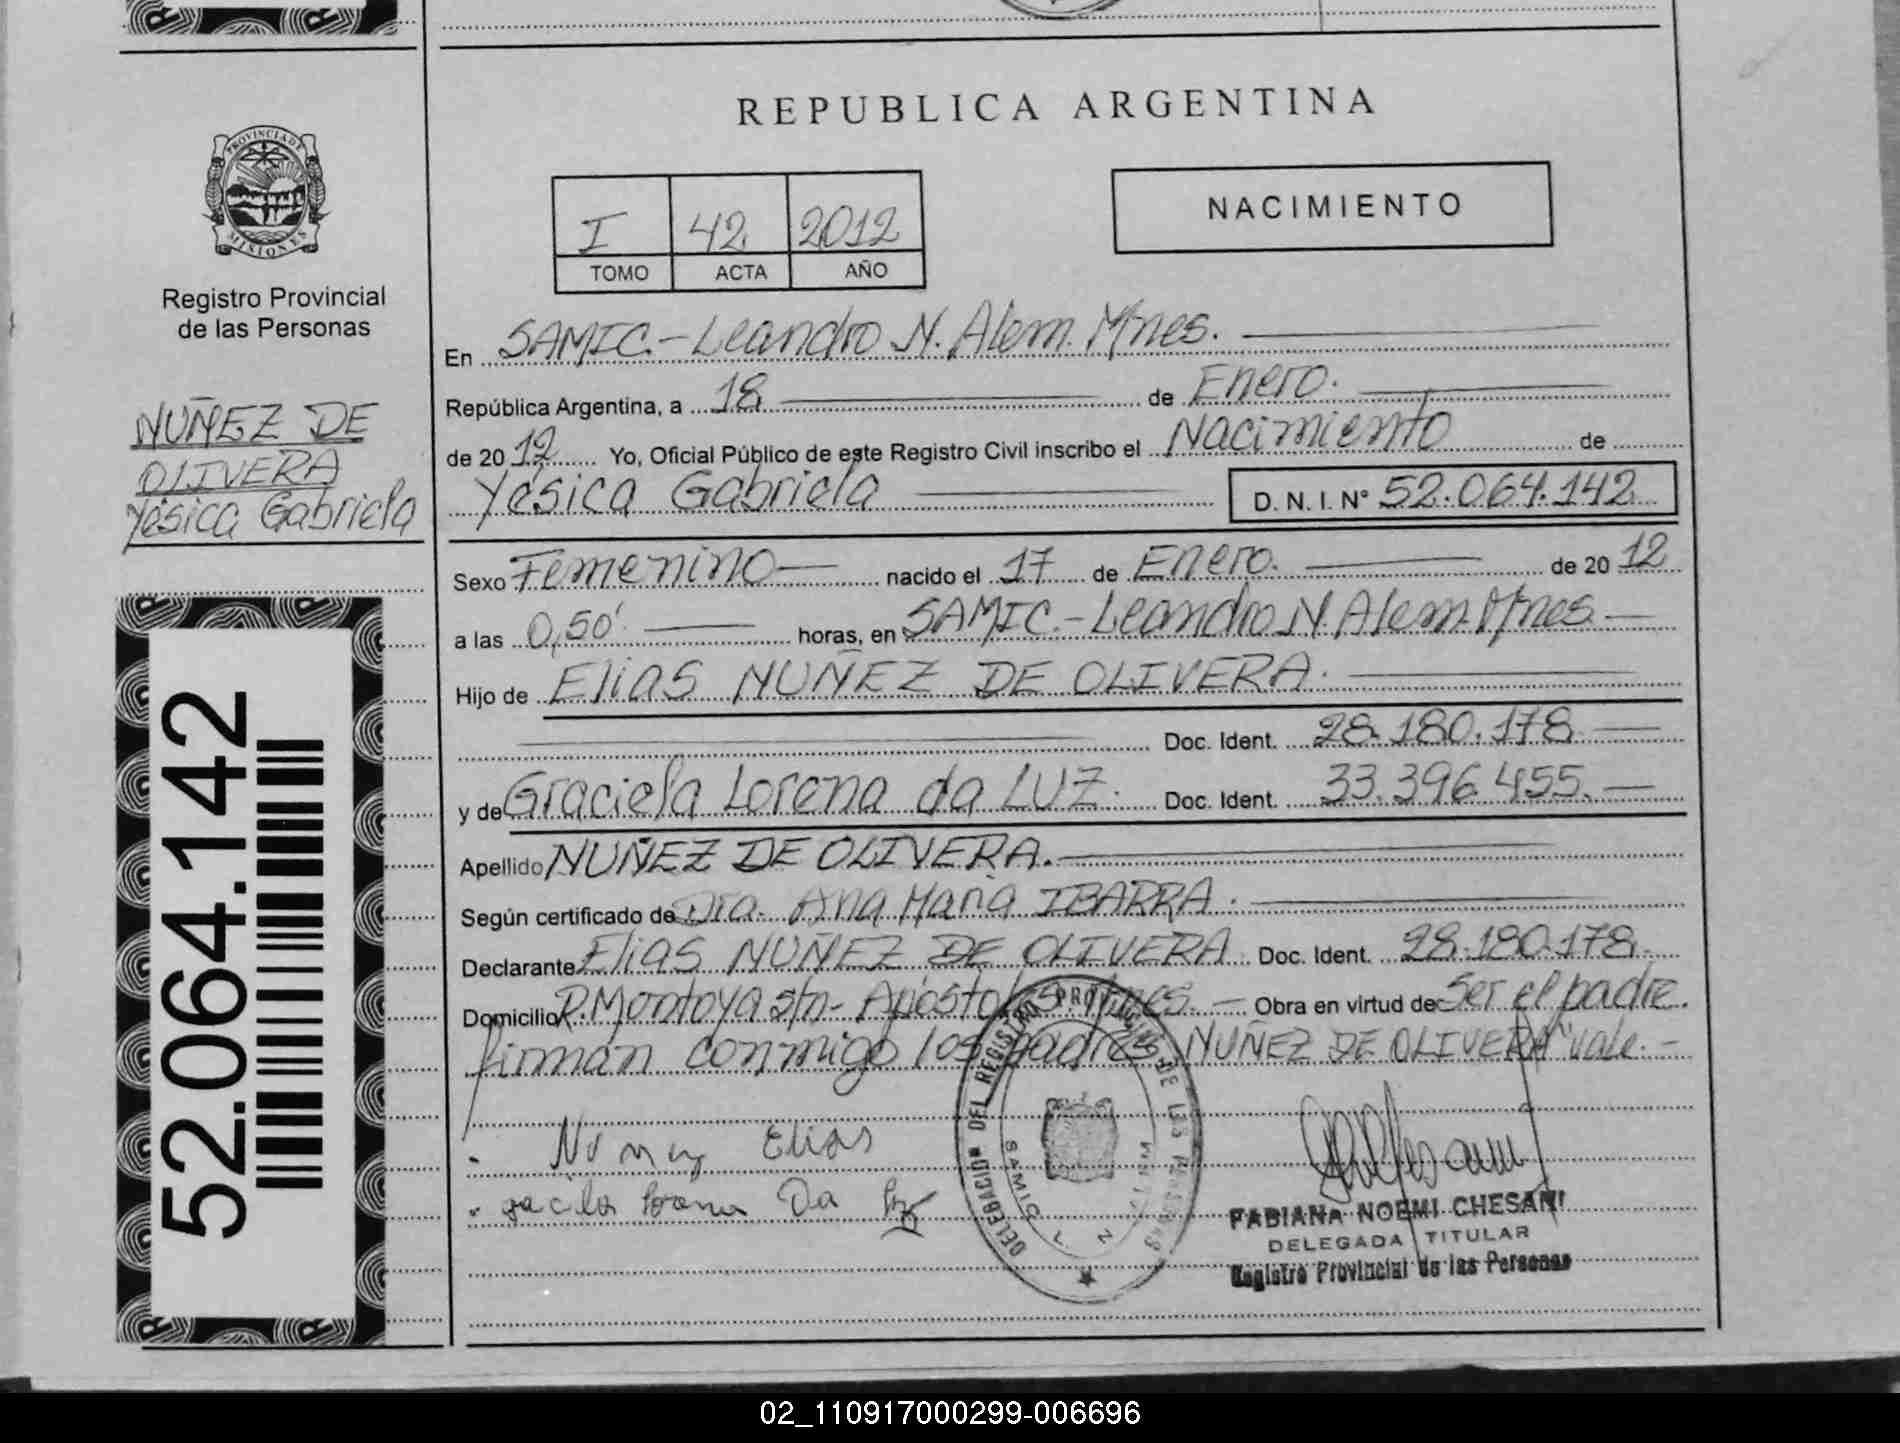 REPUBLICA ARGENTINA
PROVINCIA DE
MISIONES
Registro Provincial
de las Personas
NUÑEZ DE
OLIVERA
Yésica Gabriela
52.064.142
I 42 2012
TOMO ACTA AÑO
NACIMIENTO
En SAMIC.-Leandro N. Alem. Mnes.
República Argentina, a 18 de Enero.
de 2012 Yo, Oficial Público de este Registro Civil inscribo el Nacimiento de
Yésica Gabriela D. N. I. N° 52.064.142
Sexo Femenino nacido el 17 de Enero. de 2012
a las 0,50' horas, en SAMIC.-Leandro N. Alem. Mnes.
Hijo de Elias NUÑEZ DE OLIVERA.
Doc. Ident. 28.180.178
y de Graciela Lorena da LUZ. Doc. Ident. 33.396.455.
Apellido NUÑEZ DE OLIVERA.
Según certificado de Dra. Ana Maria IBARRA.
Declarante Elias NUÑEZ DE OLIVERA Doc. Ident. 28.180.178.
Domicilio R. Montoya s/n- Apóstoles. Mnes. - Obra en virtud de Ser el padre.
firman conmigo los padres, NUÑEZ DE OLIVERA" Vale.-
Elias
Da
DELEGACION DEL REGISTRO PROVINCIAL DE LAS PERSONAS
SAMIC L. N.
FABIANA NOEMI CHESANI
DELEGADA TITULAR
Registro Provincial de las Personas
02_110917000299-006696